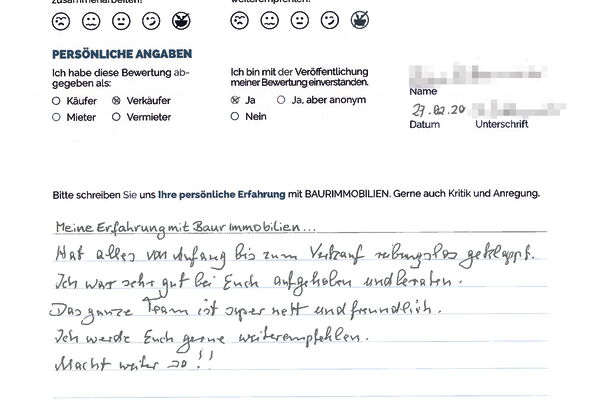 zusammenarbeiten? weiterempfehlen?
PERSÖNLICHE ANGABEN
Ich habe diese Bewertung ab-
gegeben als:
Käufer Verkäufer
Mieter Vermieter
Ich bin mit der Veröffentlichung
meiner Bewertung einverstanden.
Ja Ja, aber anonym
Nein
Name
27.02.20
Datum Unterschrift
Bitte schreiben Sie uns Ihre persönliche Erfahrung mit BAURIMMOBILIEN. Gerne auch Kritik und Anregung.
Meine Erfahrung mit Baur Immobilien...
Hat alles von Anfang bis zum Verkauf reibungslos geklappt.
Ich war sehr gut bei Euch aufgehoben und beraten.
Das ganze Team ist super nett und freundlich.
Ich werde Euch gerne weiterempfehlen.
Macht weiter so!!